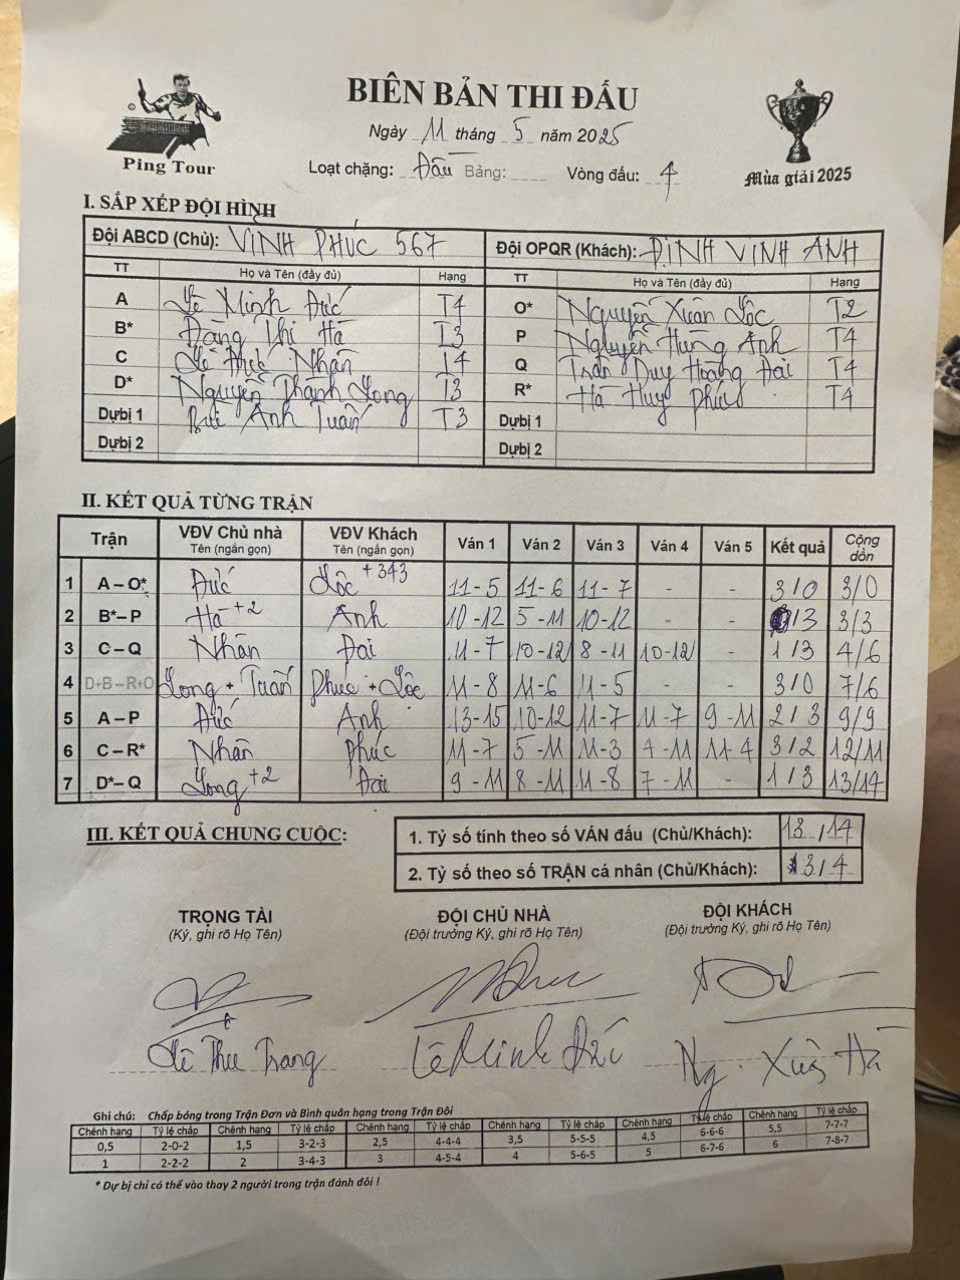 BIÊN BẢN THI ĐẤU
Ngày 11 tháng 5 năm 2025
Ping Tour
Loạt chặng: Đấu Bảng: Vòng đấu: 4
Mùa giải 2025
I. SẮP XẾP ĐỘI HÌNH
Đội ABCD (Chủ): VINH PHÚC 567 Đội OPQR (Khách): ĐINH VINH ANH
TT Họ và Tên (đầy đủ) Hạng TT Họ và Tên (đầy đủ) Hạng
A Lê Minh Đức T4 O* Nguyễn Xuân Lộc T2
B* Đặng Thị Hà T3 P Nguyễn Hùng Anh T4
C Lê Đức Nhân T4 Q Trần Duy Hoàng Đại T4
D* Nguyễn Thành Long T3 R* Hà Huy Phúc T4
Dự bị 1 Bùi Anh Tuấn T3 Dự bị 1
Dự bị 2 Dự bị 2
II. KẾT QUẢ TỪNG TRẬN
Trận VĐV Chủ nhà Tên (ngắn gọn) VĐV Khách Tên (ngắn gọn) Ván 1 Ván 2 Ván 3 Ván 4 Ván 5 Kết quả Cộng dồn
1 A – O* Đức Lộc +343 11-5 11-6 11-7 - - 3/0 3/0
2 B*– P Hà +2 Anh 10-12 5-11 10-12 - - /3 3/3
3 C – Q Nhân Đại 11-7 10-12 8-11 10-12 - 1/3 4/6
4 D+B – R+O Long + Tuấn Phúc + Lộc 11-8 11-6 11-5 - - 3/0 7/6
5 A – P Đức Anh 13-15 10-12 11-7 11-7 9-11 2/3 9/9
6 C – R* Nhân Phúc 11-7 5-11 11-3 7-11 11-4 3/2 12/11
7 D*– Q Long +2 Đại 9-11 8-11 11-8 7-11 - 1/3 13/14
III. KẾT QUẢ CHUNG CUỘC:
1. Tỷ số tính theo số VÁN đấu (Chủ/Khách): 13/14
2. Tỷ số theo số TRẬN cá nhân (Chủ/Khách): 3/4
TRỌNG TÀI ĐỘI CHỦ NHÀ ĐỘI KHÁCH
(Ký, ghi rõ Họ Tên) (Đội trưởng Ký, ghi rõ Họ Tên) (Đội trưởng Ký, ghi rõ Họ Tên)
Lê Thu Trang Lê Minh Đức Ng. Xuân Hà
Ghi chú: Chấp bóng trong Trận Đơn và Bình quân hạng trong Trận Đôi
Chênh hạng Tỷ lệ chấp Chênh hạng Tỷ lệ chấp Chênh hạng Tỷ lệ chấp Chênh hạng Tỷ lệ chấp Chênh hạng Tỷ lệ chấp Chênh hạng Tỷ lệ chấp
0,5 2-0-2 1,5 3-2-3 2,5 4-4-4 3,5 5-5-5 4,5 6-6-6 5,5 7-7-7
1 2-2-2 2 3-4-3 3 4-5-4 4 5-6-5 5 6-7-6 6 7-8-7
* Dự bị chỉ có thể vào thay 2 người trong trận đánh đôi !